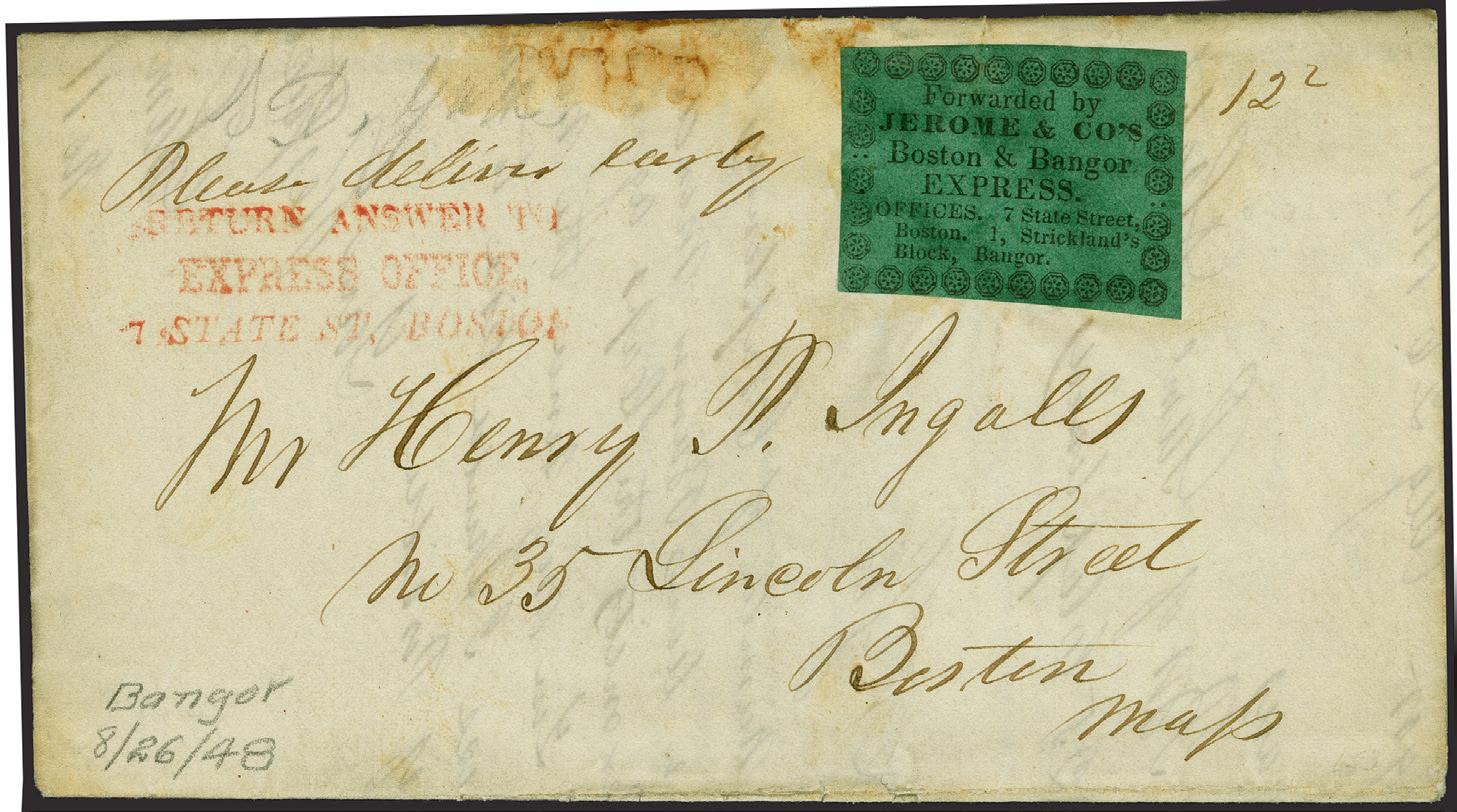 12²
Forwarded by
JEROME & CO'S
Boston & Bangor
EXPRESS.
OFFICES. 7 State Street,
Boston. 1, Strickland's
Block, Bangor.
Please deliver early
RETURN ANSWER TO
EXPRESS OFFICE,
7 STATE ST, BOSTON
Mr Henry P. Ingalls
No 35 Lincoln Street
Boston
Mass
Bangor
8/26/48